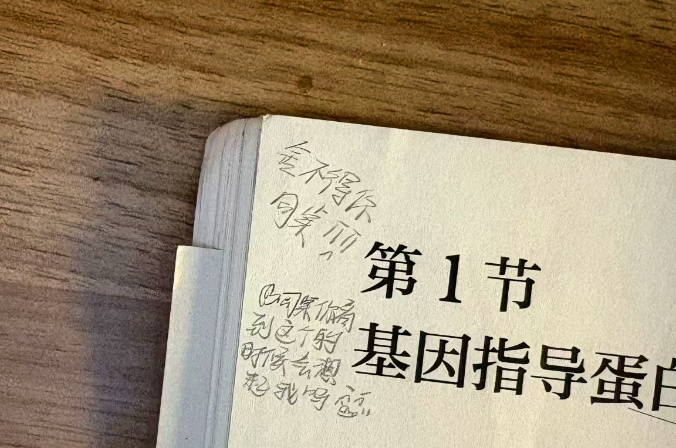 舍不得你
第1节
基因指导蛋白
你看
到这个的
时候会想
起我吗